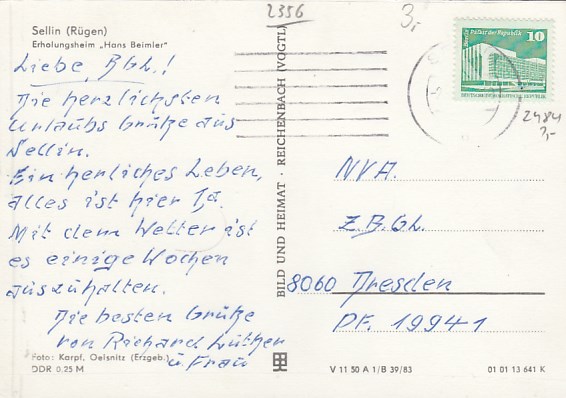 2356
3,-
Sellin (Rügen)
Erholungsheim „Hans Beimler"
Liebe, BGL.!
Die herzlichsten
Urlaubs Grüße aus
Sellin.
Ein herrliches Leben,
alles ist hier 1a.
Mit dem Wetter ist
es einige Wochen
auszuhalten.
Die besten Grüße
von Richard
u. Frau
Foto: Karpf, Oelsnitz (Erzgeb.)
DDR 0.25 M
BILD UND HEIMAT · REICHENBACH (VOGTL)
10
Berlin Palast der Republik
DEUTSCHE DEMOKRATISCHE REPUBLIK
2484
3,-
NVA.
Z.BGL.
8060 Dresden
PF. 19941
V 11 50 A 1/B 39/83
01 01 13 641 K